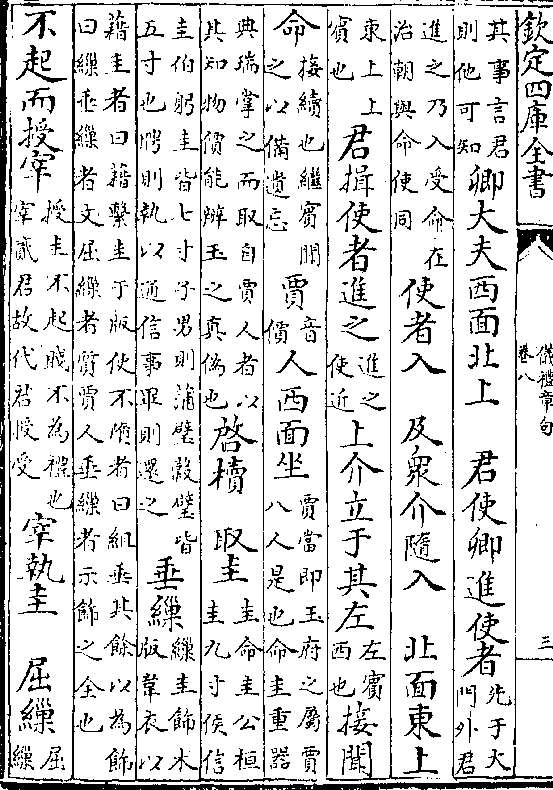 欽定四庫全書
儀禮章句
卷八
三
其事言君
則他可知
卿大夫西面北上
君使卿進使者
先于大
門外君
進之乃入受命在
治朝與命使同
使者入
及衆介隨入
北面東上
東上上
賔也
君揖使者進之
進之
使近
上介立于其左
左賔
西也
接聞
命
接續也繼賔聞
命之以備遺忘
賈
音
價
人西面坐
賈當即玉府之屬賈
八人是也命圭重器
典瑞掌之而取自賈人者以
其知物價能辨玉之真偽也
啓櫝
取圭
圭命圭公桓
圭九寸侯信
圭伯躬圭皆七寸子男則蒲璧榖璧皆
五寸也聘則執以通信事畢則還之
垂繅
繅圭飾木
版韋衣以
藉圭者曰藉繫圭于版使不墮者曰組垂其餘以為飾
曰繅垂繅者文屈繅者質賈人垂繅者示飾之全也
不起而授宰
授圭不起賤不為禮也
宰貳君故代君授受
宰執圭
屈繅
屈
繅